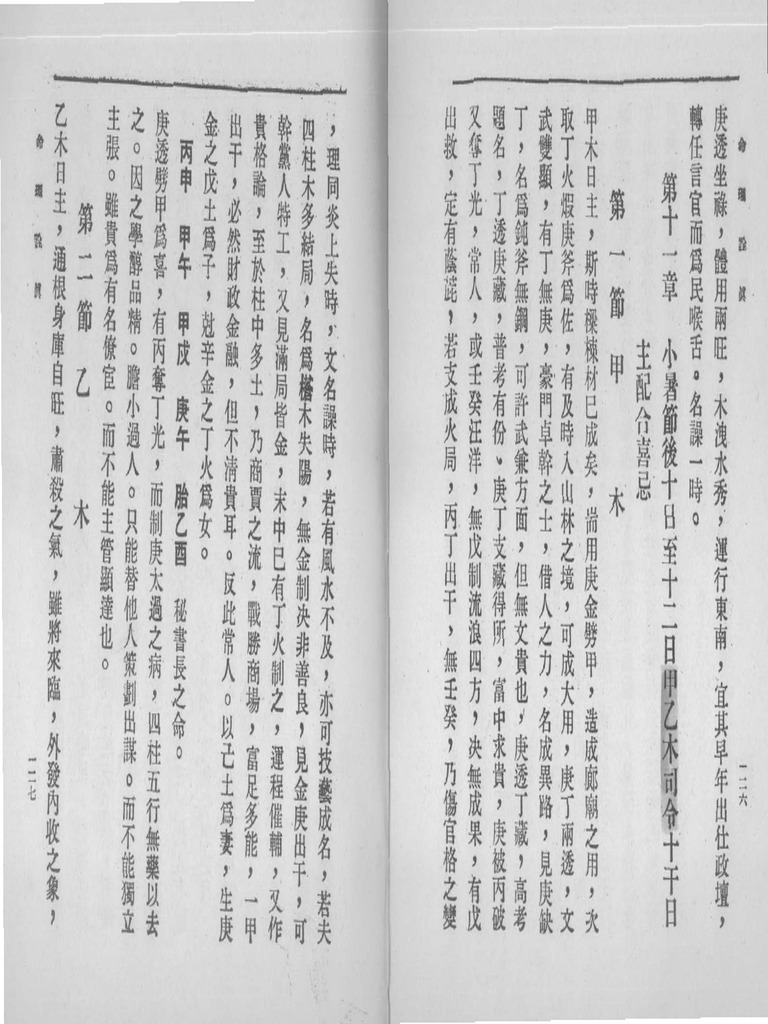 命理詮眞
庚透坐祿，體用兩旺，木洩水秀，運行東南，宜其早年出仕政壇，
轉任言官而爲民喉舌。名譟一時。
第十一章　小暑節後十日至十二日甲乙木司令十干日
主配合喜忌
第一節　甲　木
甲木日主，斯時樑棟材已成矣，耑用庚金劈甲，造成廊廟之用，次
取丁火煅庚斧爲佐，有及時入山林之境，可成大用，庚丁兩透，文
武雙顯，有丁無庚，豪門卓幹之士，借人之力，名成異路，見庚缺
丁，名爲鈍斧無鋼，可許武兼方面，但無文貴也，庚透丁藏，高考
題名，丁透庚藏，普考有份。庚丁支藏得所，富中求貴，庚被丙破
又奪丁光，常人，或壬癸汪洋，無戊制流浪四方，決無成果，有戊
出救，定有蔭庇，若支成火局，丙丁出干，無壬癸，乃傷官格之變
一一六
，理同炎上失時，文名譟時，若有風水不及，亦可技藝成名，若夫
四柱木多結局，名爲榰木失陽，無金制決非善良，見金庚出干，可
幹黨人特工，又見滿局皆金，未中巳有丁火制之，運程催輔，又作
貴格論，至於柱中多土，乃商賈之流，戰勝商場，富足多能，一甲
出干，必然財政金融，但不清貴耳。反此常人。以己土爲妻，生庚
金之戊土爲子，尅辛金之丁火爲女。
丙申　甲午　甲戌　庚午　胎乙酉　秘書長之命。
庚透劈甲爲喜，有丙奪丁光，而制庚太過之病，四柱五行無藥以去
之。因之學醇品精。膽小過人。只能替他人策劃出謀。而不能獨立
主張。雖貴爲有名僚宦。而不能主管顯達也。
第二節　乙　木
乙木日主，通根身庫自旺，肅殺之氣，雖將來臨，外發內收之象，
命理詮眞
一一七